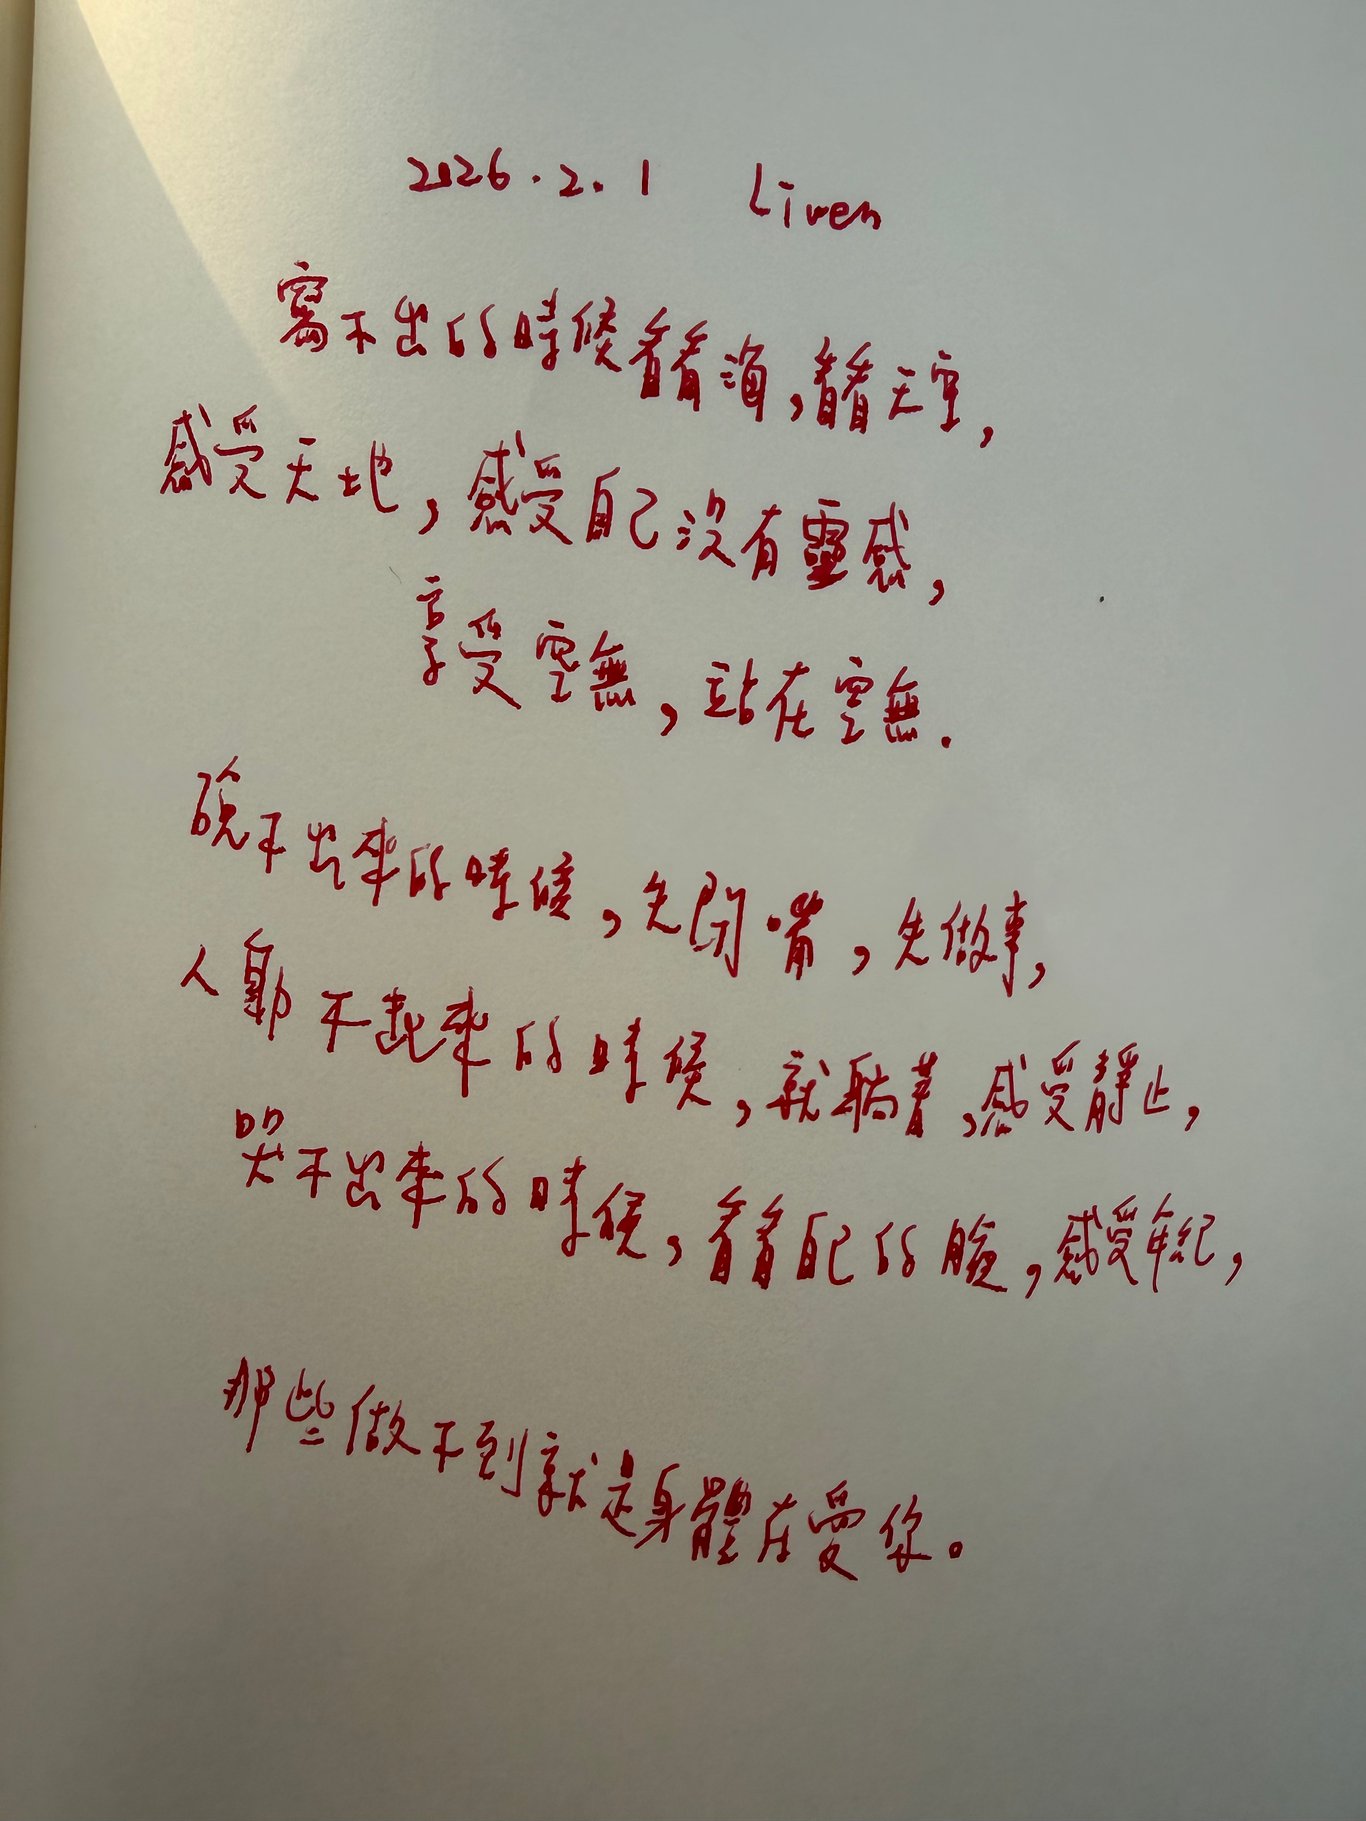 2026.2.1 Liren
寫不出的時候看看海,看看天空,
感受天地,感受自己沒有靈感,
享受空無,站在空無.
說不出來的時候,先閉嘴,先做事,
人動不起來的時候,就躺著,感受靜止,
哭不出來的時候,看看自己的臉,感受年紀,
那些做不到就是身體在愛你。